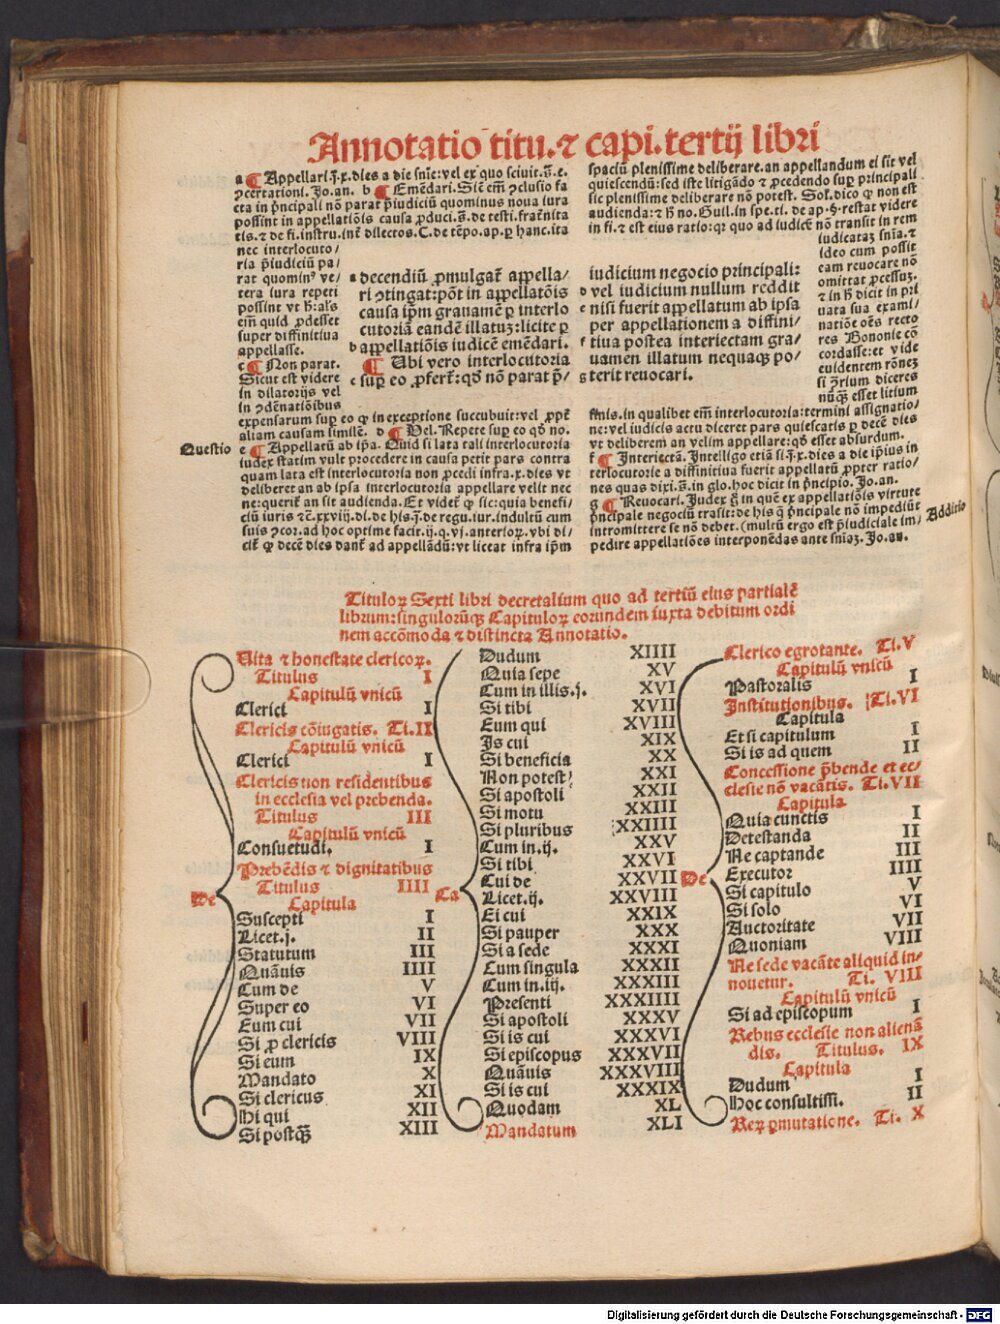 Annotatio titu. ⁊ capi. tertij libri
a ¶ Appellari.j.x.dies a die snīe:vel ex quo sciuit.ā.e.
ꝯcertationi. Jo.an. b ¶ Emēdari. Sic em̄ ꝯclusio fa
cta in p̄ncipali nō parat p̄iudiciū quominus noua iura
possint in appellatiōis causa ꝓduci.ā.de testi.frat̄nita
tis.⁊ de fi.instru.int̄ dilectos.C.de tēpo.ap.ꝑ hanc.ita
nec interlocuto/
ria p̄iudiciū pa/
rat quominꝰ ve/
tera iura repeti
possint vt h̄:al's
em̄ quid ꝓdesset
super diffinitiua
appellasse.
c ¶ Non parat.
Sicut est videre
in dilatorijs vel
in ꝯdēnatiōibus
expensarum suꝑ eo ꝙ in exceptione succubuit:vel ꝓpt̄
aliam causam similē. d ¶ Vel. Repete suꝑ eo qd̄ no.
Questio
e ¶ Appellatū ab ip̄a. Quid si lata tali interlocutoria
iudex statim vult procedere in causa petit pars contra
quam lata est interlocutoria non ꝓcedi infra.x.dies vt
deliberet an ab ipsa interlocutoria appellare velit nec
ne:querit̄ an sit audienda. Et videt̄ ꝙ sic:quia benefi/
ciū iuris ⁊c̄.xxviij.di.de his.j.de regu.iur.indultū cum
suis ꝯcor.ad hoc optime facit.ij.q.vj.anterioꝝ.vbi di/
cit̄ ꝙ decē dies dant̄ ad appellādū:vt liceat infra ip̄m
a decendiū ꝓmulgat̄ appella/
ri ꝯtingat:pōt in appellatōis
causa ip̄m grauamē ꝑ interlo
cutoriā eandē illatuꝫ:licite ꝑ
b appellatiōis iudicē emēdari.
¶ Ubi vero interlocutoria
c suꝑ eo ꝓfert̄:qd̄ nō parat p̄/
spaciū plenissime deliberare.an appellandum ei sit vel
quiescendū:sed iste litigādo ⁊ ꝓcedendo suꝑ principali
sic plenissime deliberare nō potest. Sol'.dico ꝙ non est
audienda:⁊ h̄ no. Guil.in spe.ti.de ap.§.restat videre
in fi.⁊ est eius ratio:qꝛ quo ad iudicē nō transit in rem
iudicataꝫ snīa.⁊
ideo cum possit
eam reuocare nō
omittat ꝓcessuꝫ.
⁊ in h̄ dicit in pri
uata sua exami/
natiōe oēs recto
res Bononie cō
cordasse:et vide
euidentem rōneꝫ
si ꝯ̄rium diceres
nūꝙ̄ esset litium
iudicium negocio principali:
d vel iudicium nullum reddit
e nisi fuerit appellatum ab ipsa
per appellationem a diffini/
f tiua postea interiectam gra/
uamen illatum nequaqꝫ po/
g sterit reuocari.
finis.in qualibet em̄ interlocutoria:termini assignatio/
ne:vel iudicis actu diceret pars quiescatis ꝑ decē dies
vt deliberem an velim appellare:qd̄ esset absurdum.
f ¶ Interiectā. Intelligo etiā si.j.x.dies a die ip̄ius in
terlocutorie a diffinitiua fuerit appellatū ꝓpter ratio/
nes quas dixi.ā.in glo.hoc dicit in p̄ncipio. Jo.an.
g ¶ Reuocari. Judex ḡ in quē ex appellatiōis virtute
p̄ncipale negociū trāsit:de his q̄ p̄ncipale nō impediūt
intromittere se nō debet.(multū ergo est p̄iudiciale im/
pedire appellatiōes interponēdas ante sniaꝫ. Jo.an.
Additio
Tituloꝝ Sexti libri decretalium quo ad tertiū eius partialē
librum:singulorūqꝫ Capituloꝝ eorundem iuxta debitum ordi
nem accōmoda ⁊ distincta Annotatio.
De
Vita ⁊ honestate clericoꝝ.
Titulus I
Capitulū vnicū
Clerici I
Clericis cōiugatis. Ti.II
Capitulū vnicū
Clerici I
Clericis non residentibus
in ecclesia vel prebenda.
Titulus III
Capitulū vnicū
Consuetudi. I
Prebēdis ⁊ dignitatibus
Titulus IIII
Capitula
Suscepti I
Licet.j. II
Statutum III
Quāuis IIII
Cum de V
Super eo VI
Eum cui VII
Si ꝓ clericis VIII
Si eum IX
Mandato X
Si clericus XI
Hi qui XII
Si postqꝫ̄ XIII
Ca
Dudum XIIII
Quia sepe XV
Cum in illis.j. XVI
Si tibi XVII
Eum qui XVIII
Is cui XIX
Si beneficia XX
Non potest XXI
Si apostoli XXII
Si motu XXIII
Si pluribus XXIIII
Cum in.ij. XXV
Si tibi XXVI
Cui de XXVII
Licet.ij. XXVIII
Ei cui XXIX
Si pauper XXX
Si a sede XXXI
Cum singula XXXII
Cum in.iij. XXXIII
Presenti XXXIIII
Si apostoli XXXV
Si is cui XXXVI
Si episcopus XXXVII
Quāuis XXXVIII
Si is cui XXXIX
Quodam XL
Mandatum XLI
De
Clerico egrotante. Ti.V
Capitulū vnicū
Pastoralis I
Institutionibus. Ti.VI
Capitula
Et si capitulum I
Si is ad quem II
Concessione p̄bende et ec/
clesie nō vacātis. Ti.VII
Capitula
Quia cunctis I
Detestanda II
Ne captande III
Executor IIII
Si capitulo V
Si solo VI
Auctoritate VII
Quoniam VIII
Ne sede vacāte aliquid in/
nouetur. Ti. VIII
Capitulū vnicū
Si ad episcopum I
Rebus ecclesie non alienā
dis. Titulus. IX
Capitula
Dudum I
Hoc consultissi. II
Reꝝ ꝑmutatione. Ti. X
Digitalisierung gefördert durch die Deutsche Forschungsgemeinschaft - DFG